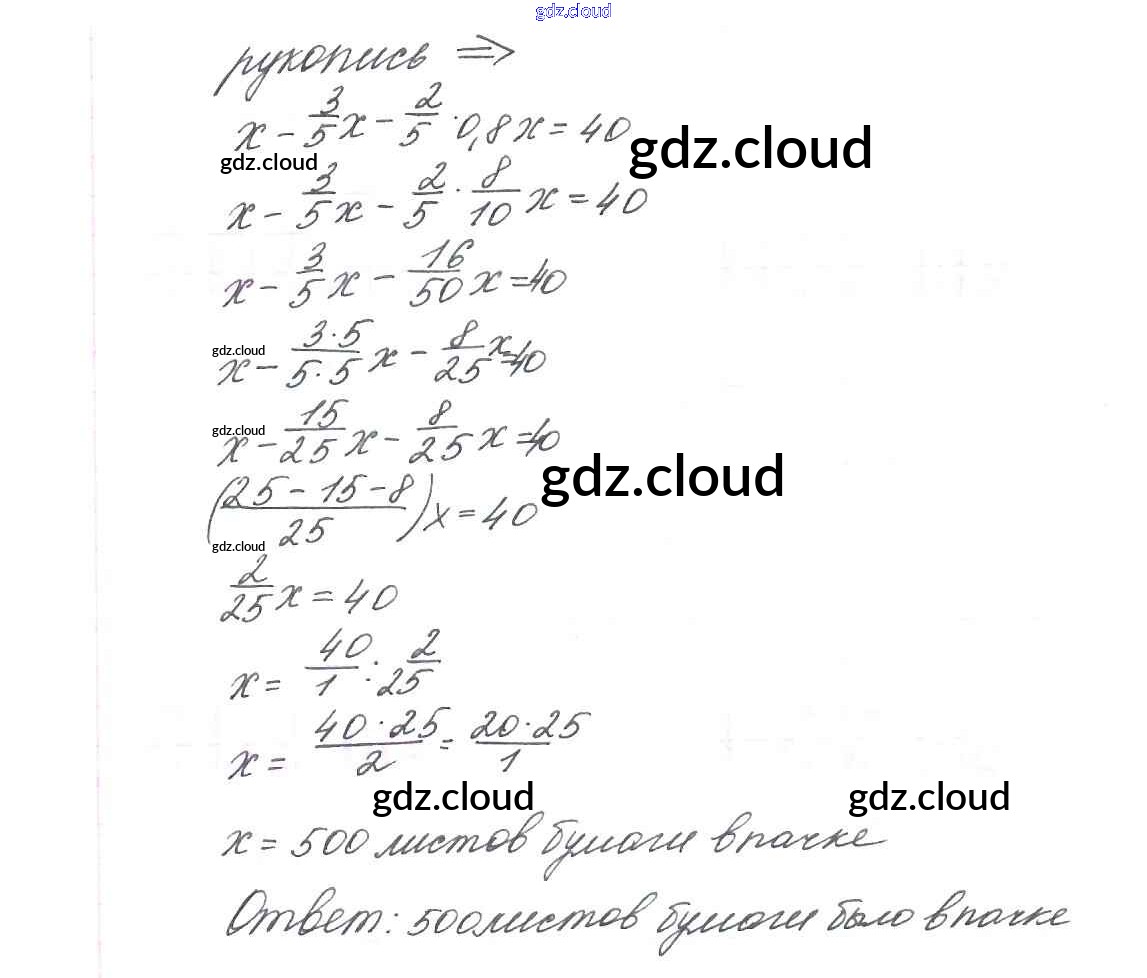 gdz.cloud
рукопись ⇒
x - 3/5 x - 2/5 · 0,8x = 40
gdz.cloud
gdz.cloud
x - 3/5 x - 2/5 · 8/10 x = 40
x - 3/5 x - 16/50 x = 40
gdz.cloud
x - 3·5/5·5 x - 8/25 x = 40
gdz.cloud
x - 15/25 x - 8/25 x = 40
gdz.cloud
(25 - 15 - 8/25) x = 40
gdz.cloud
2/25 x = 40
x = 40/1 : 2/25
x = 40·25/2 = 20·25/1
gdz.cloud gdz.cloud
x = 500 листов бумаги в пачке
Ответ: 500 листов бумаги было в пачке